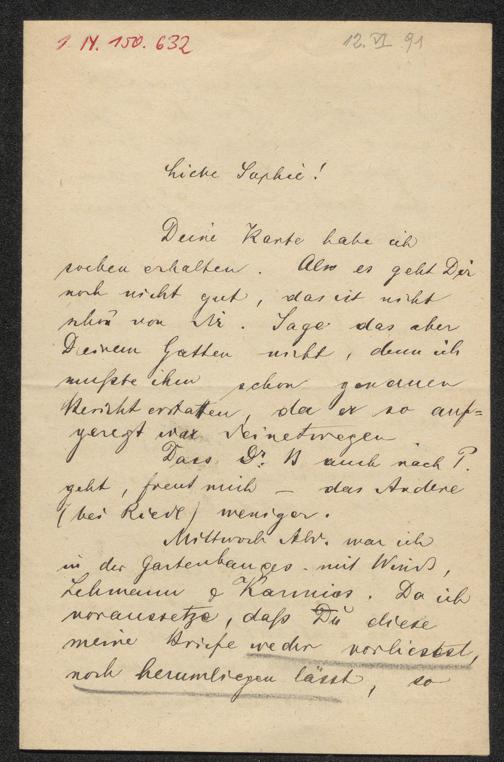 I. N. 150.632
12. VI 91
Liebe Sophie!
Deine Karte habe ich
soeben erhalten. Also es geht Dir
noch nicht gut, das ist nicht
schön von Dir. Sage das aber
Deinem Gatten nicht, denn ich
mußte ihm schon genauen
Bericht erstatten, da er so auf=
geregt war Deinetwegen
Dass Dr. B auch nach P.
geht, freut mich – das Andere
(bei Riedl) weniger.
Mittwoch Abd. war ich
in der Gartenbauges. mit
Lehmann & Da ich
voraussetze, daß Du diese
meine Briefe weder vorliesest,
noch herumliegen lässt, so